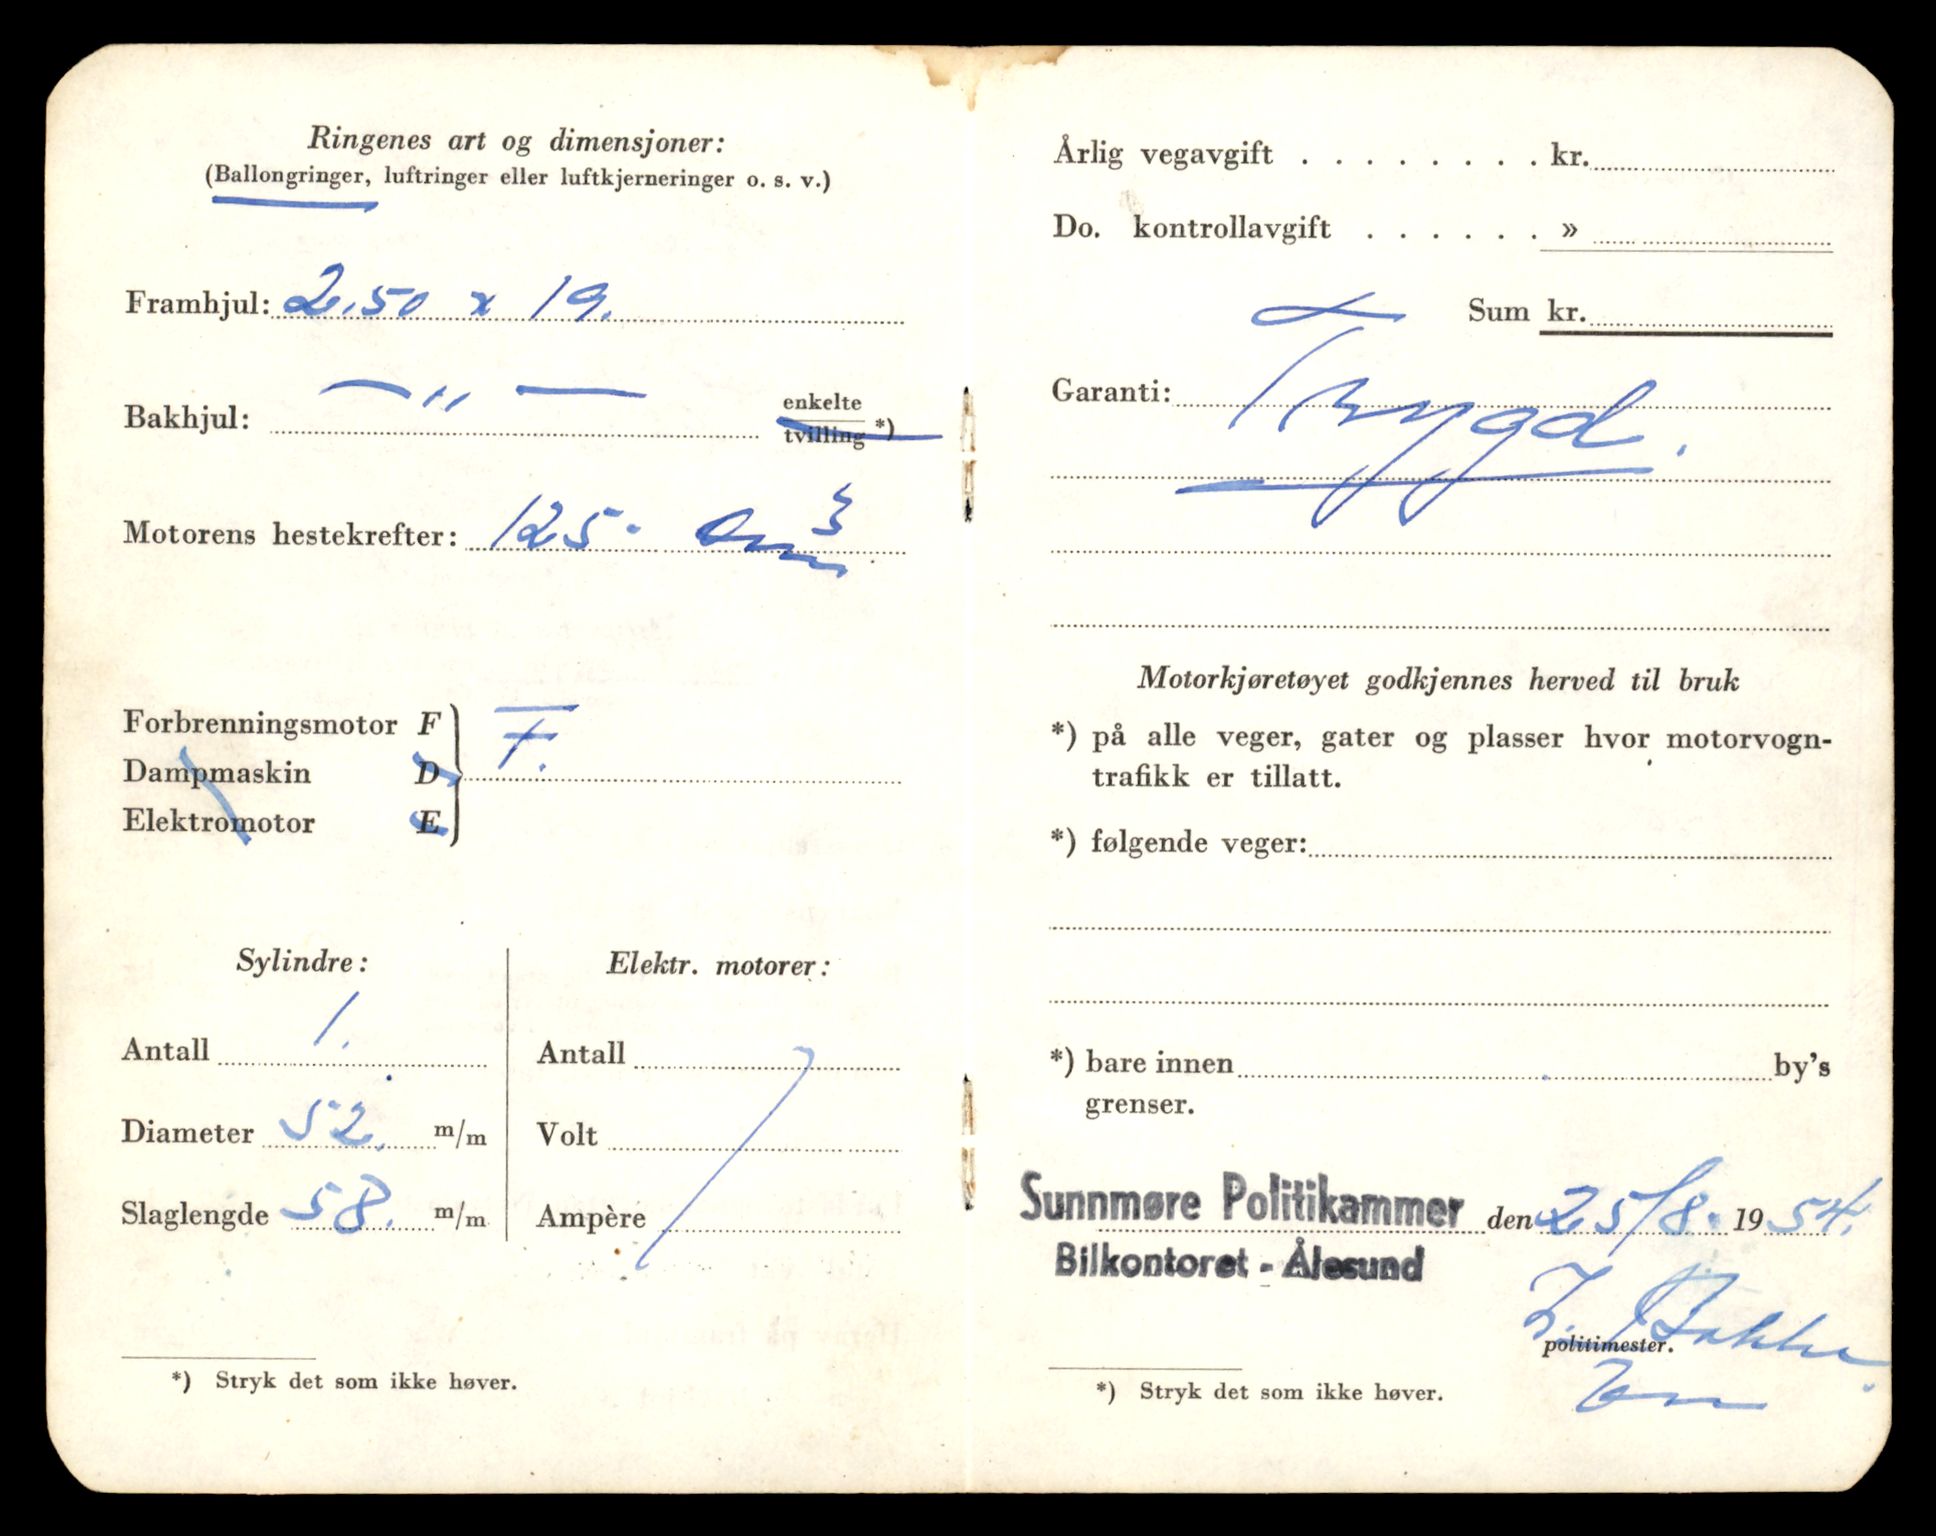 Ringenes art og dimensjoner:
(Ballongringer, luftringer eller luftkjerneringer o. s. v.)
Framhjul: 2.50 x 19.
Bakhjul: — ,, — enkelte
tvilling *)
Motorens hestekrefter: 125 cm3
Forbrenningsmotor F
Dampmaskin D F.
Elektromotor E
Sylindre:
Antall 1.
Diameter 52. m/m
Slaglengde 58. m/m
Elektr. motorer:
Antall
Volt
Ampère
*) Stryk det som ikke høver.
Årlig vegavgift . . . . . . . . kr.
Do. kontrollavgift . . . . . . »
Sum kr.
Garanti: Trygd.
Motorkjøretøyet godkjennes herved til bruk
*) på alle veger, gater og plasser hvor motorvogn-
trafikk er tillatt.
*) følgende veger:
*) bare innen by's
grenser.
Sunnmøre Politikammer den 25/8. 1954.
Bilkontoret - Ålesund
politimester.
*) Stryk det som ikke høver.